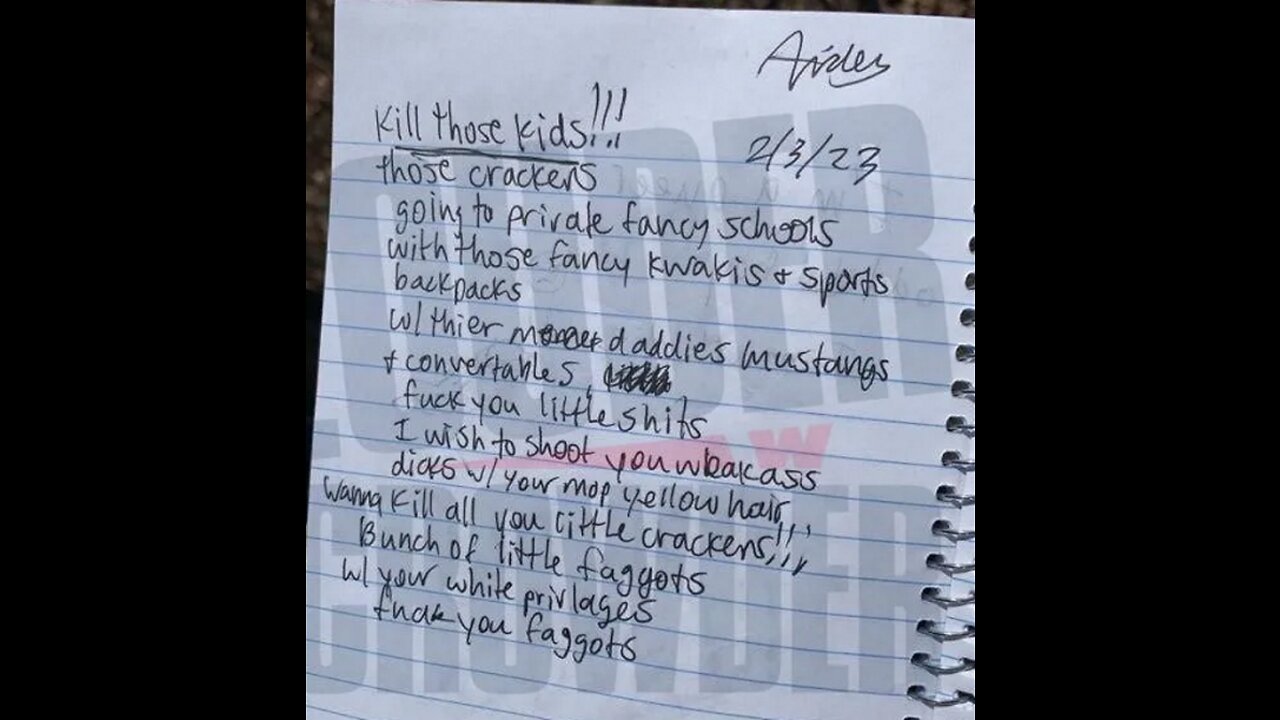 Aiden
Kill those kids!!!
2/3/23
those crackers
going to private fancy schools
with those fancy kwakis + sports
backpacks
w/ thier daddies mustangs
+ convertables,
fuck you little shits
I wish to shoot you weakass
dicks w/ your mop yellow hair,,,
wanna kill all you little crackers!!!,,
Bunch of little faggots
w/ your white privlages
fuck you faggots
LOUDER
CROWDER